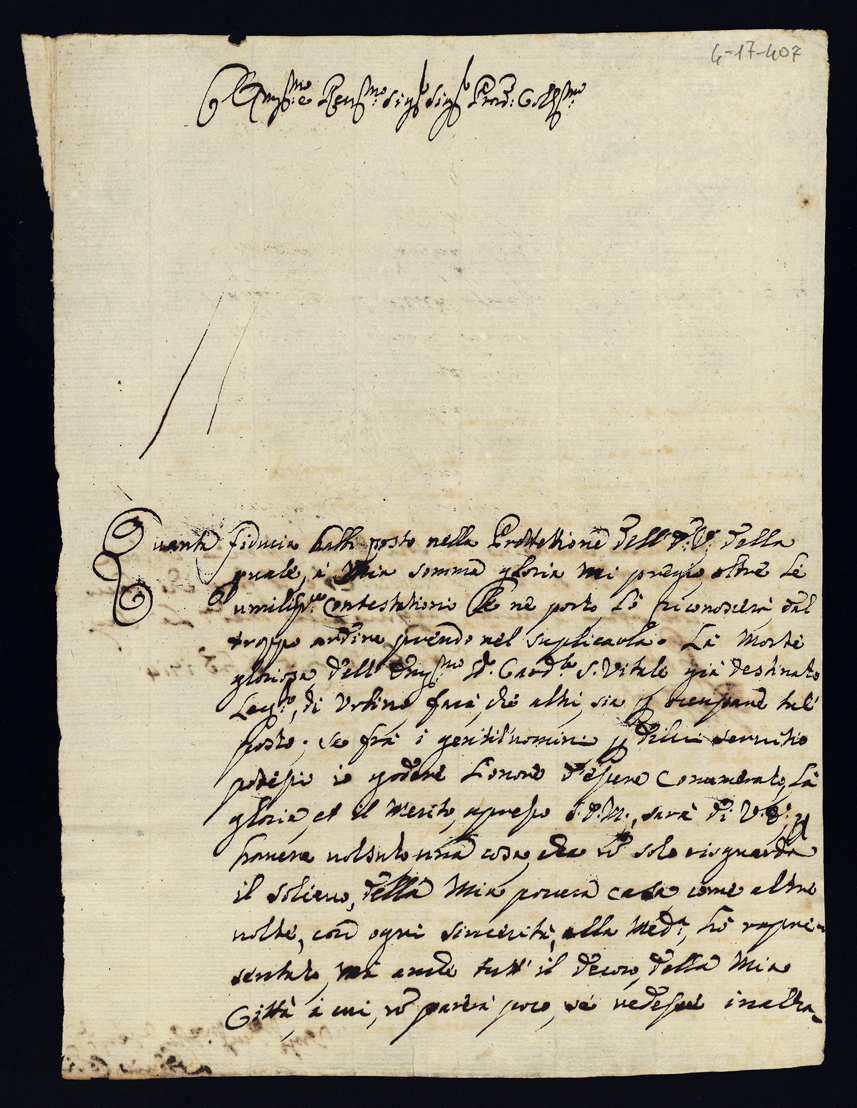 4-17-407
Em.mo e Reu.mo Sig.r Sig.r Pron. Col.mo
Quanta fiducia habbi posto nella Prottettione dell' E. V. della
quale, à Mia somma gloria mi pregio, oltre le
umilis.me Contestationi Che ne porto Lo riconoscerà dal
troppo ardire prendo nel suplicarla. La Morte
gloriosa dell' Em.mo S.r Card.le S. Vitale già destinato
Leg.to, di Urbino farà, che altri, sia p ocupare tal'
posto; se frà i gentil'uomini p di lui servitio
potessi io godere L'onore d'essere Conumerato, La
gloria, et il Merito, apresso S. D. M., sarà di V. E. p
hauere uolsuto una cosa, che nō solo risguarda
il solieuo, della Mia pouera casa come altre
uolte, con ogni sincerità, alla Med.a, hò rapre=
sentato, mà anche tutt' il decoro, della Mia
Città, à cui, nō parerà poco, se vedesse inalza=